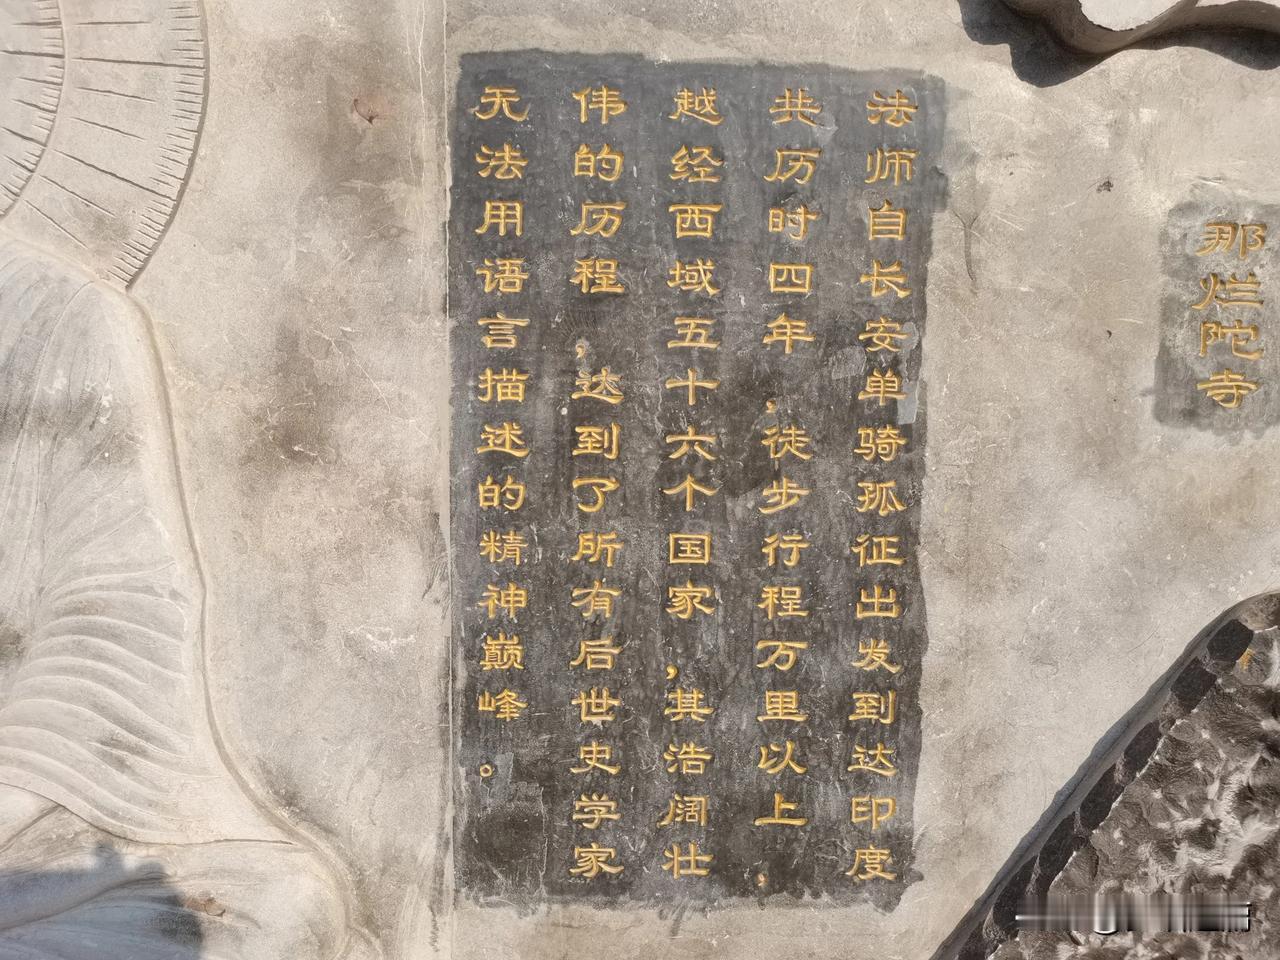 那烂陀寺
法师自长安单骑孤征出发到达印度
共历时四年,徒步行程万里以上,
越经西域五十六个国家,其浩阔壮
伟的历程,达到了所有后世史学家
无法用语言描述的精神巅峰。